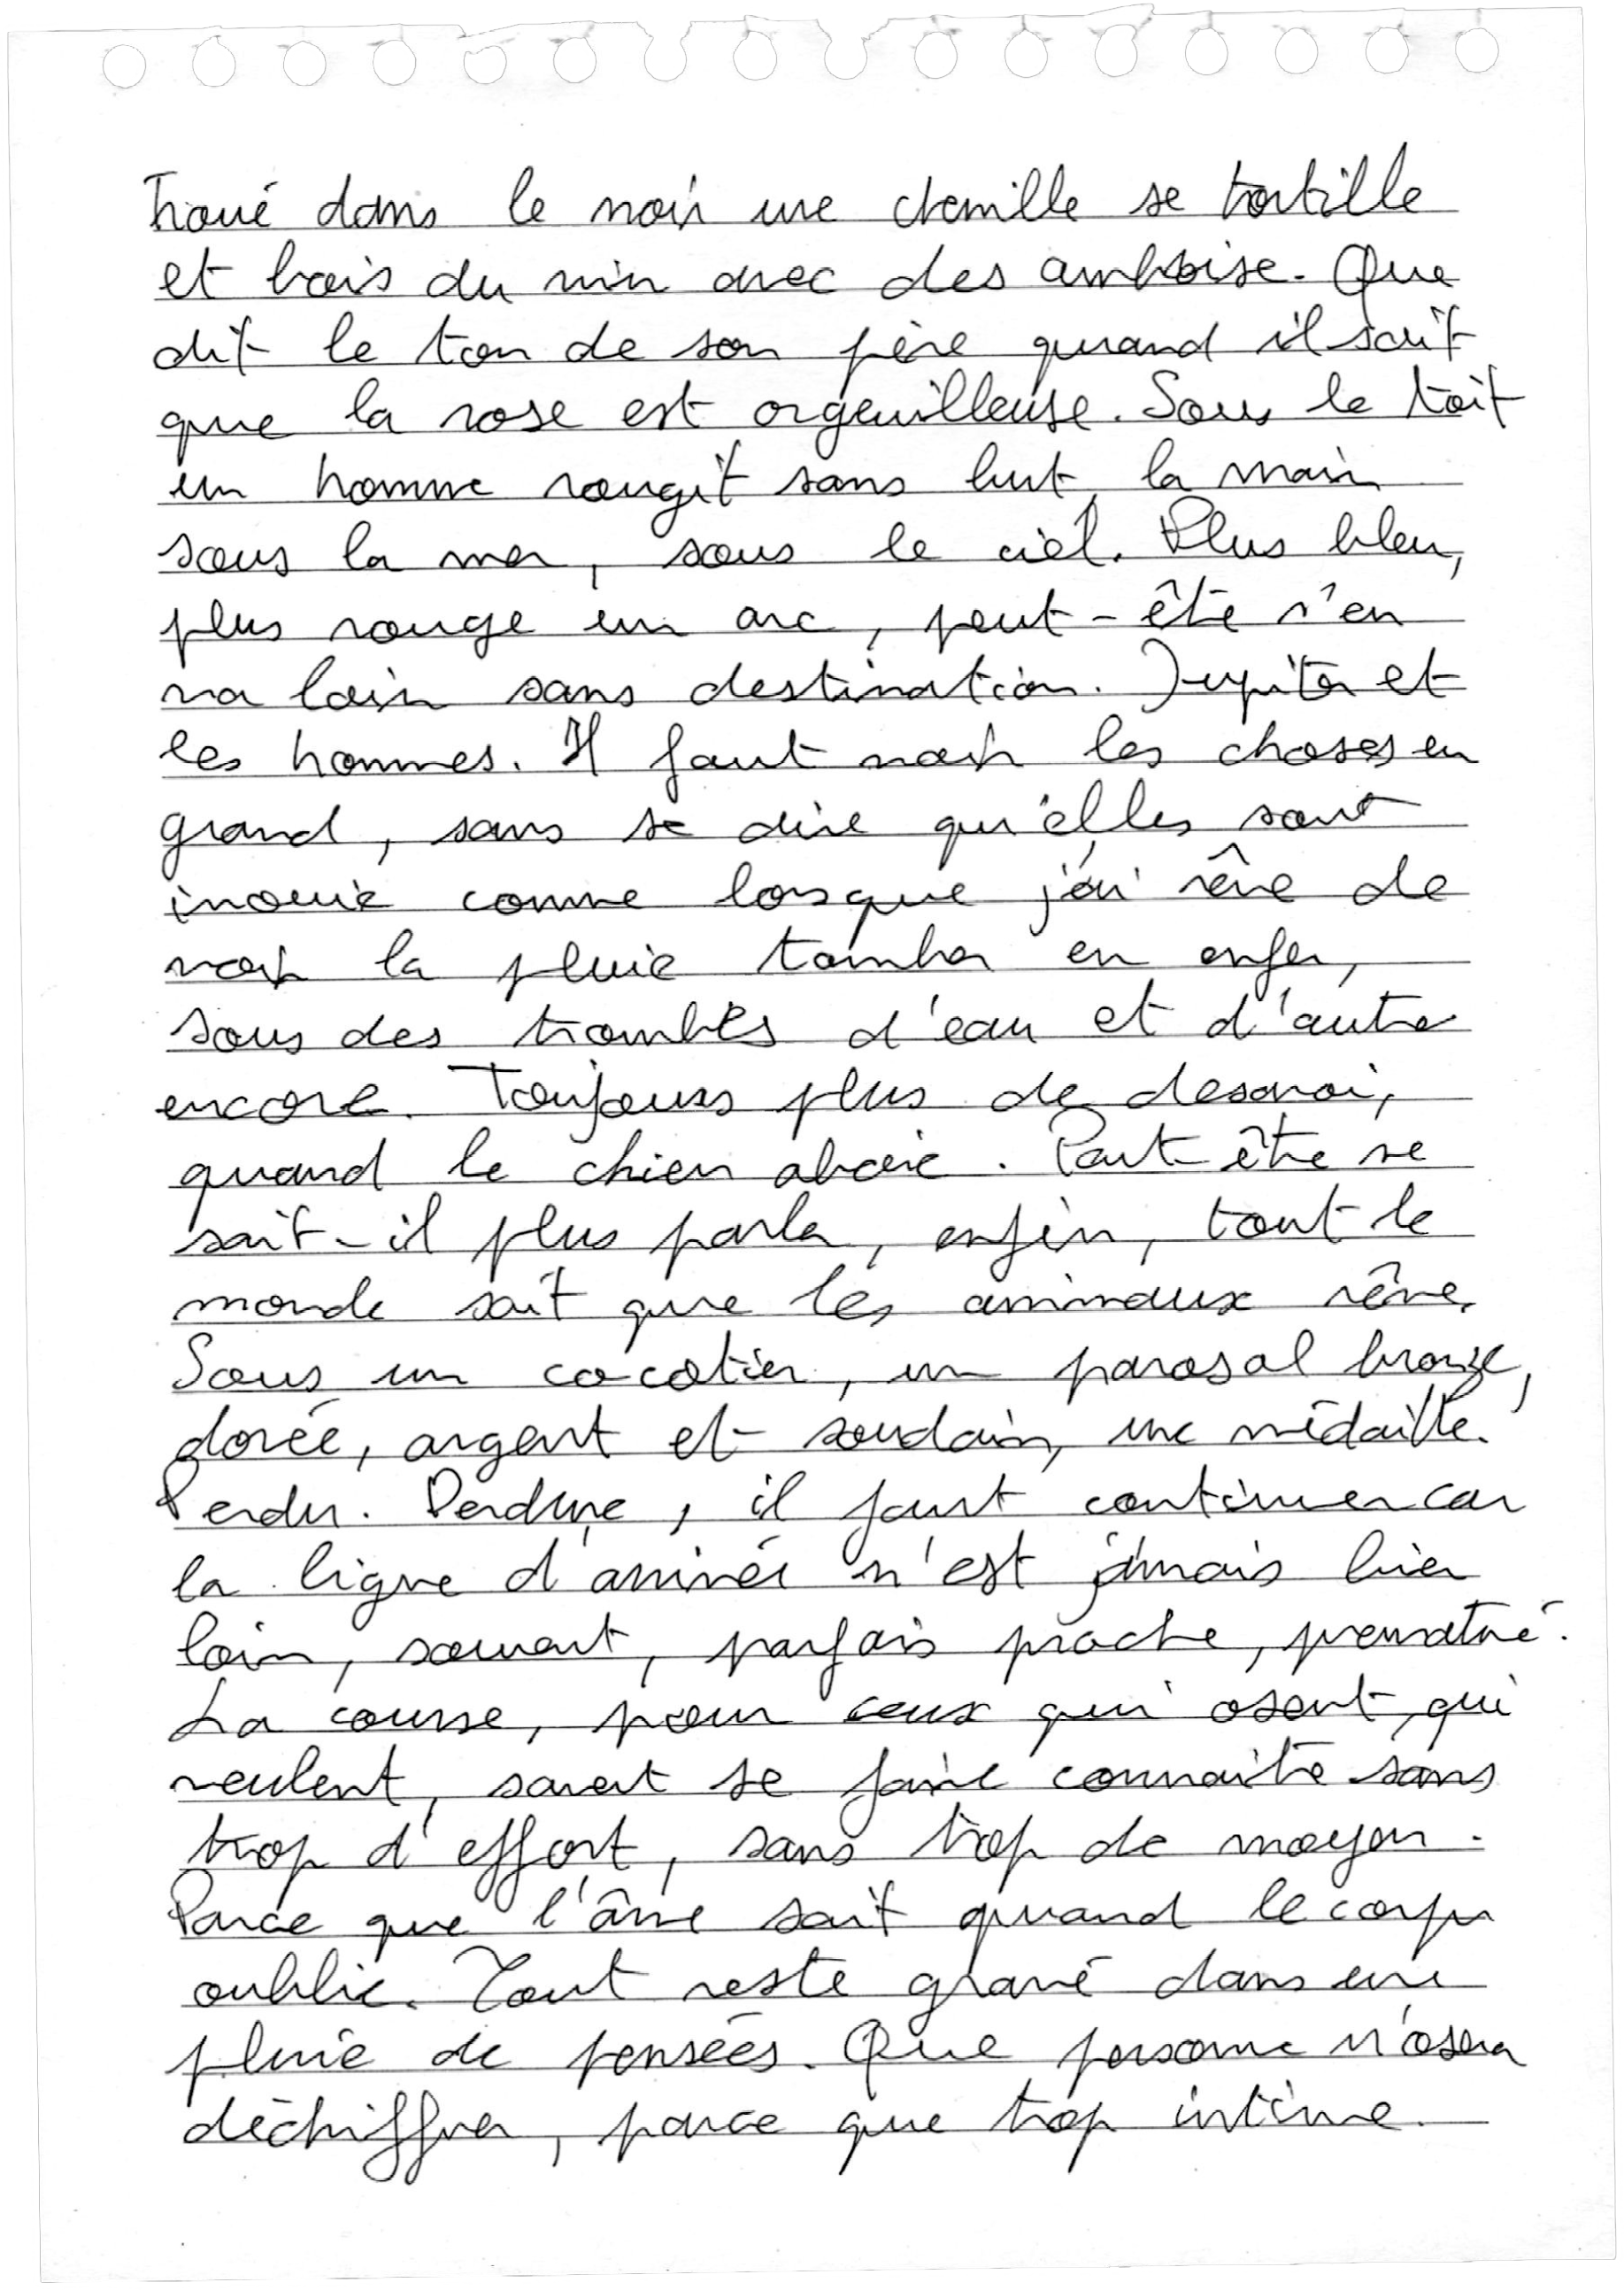 Troué dans le noir une chenille se tortille
et bois du vin avec des ambroise. Que
dit le ton de son père quand il sait
que la rose est orgeuilleuse. Sous le toit
un homme rougit sans but, la main
sous la mer, sous le ciel. Plus bleu,
plus rouge un arc, peut-être s'en
va loin sans destination. Jupiter et
les hommes. Il faut voir les choses en
grand, sans se dire qu'elles sont
inouie comme lorsque j'ai rêvé de
voir la pluie tomber en enfer,
sous des trombes d'eau et d'autre
encore. Toujours plus de desaroi,
quand le chien aboie. Peut-être ne
sait-il plus parler, enfin, tout le
monde sait que les animaux rêve.
Sous un cocotier, un parasol bronze,
dorée, argent et soudain, une médaille.
Perdu. Perdure, il faut continuer car
la ligne d'arrivée n'est jamais bien
loin, souvent, parfois proche, prematuré.
La course, pour ceux qui osent, qui
veulent, savent se faire connaitre sans
trop d'effort, sans trop de moyen.
Parce que l'âme sait quand le corps
oublie. Tout reste gravé dans une
pluie de pensées. Que personne n'osera
déchiffrer, parce que trop intime.